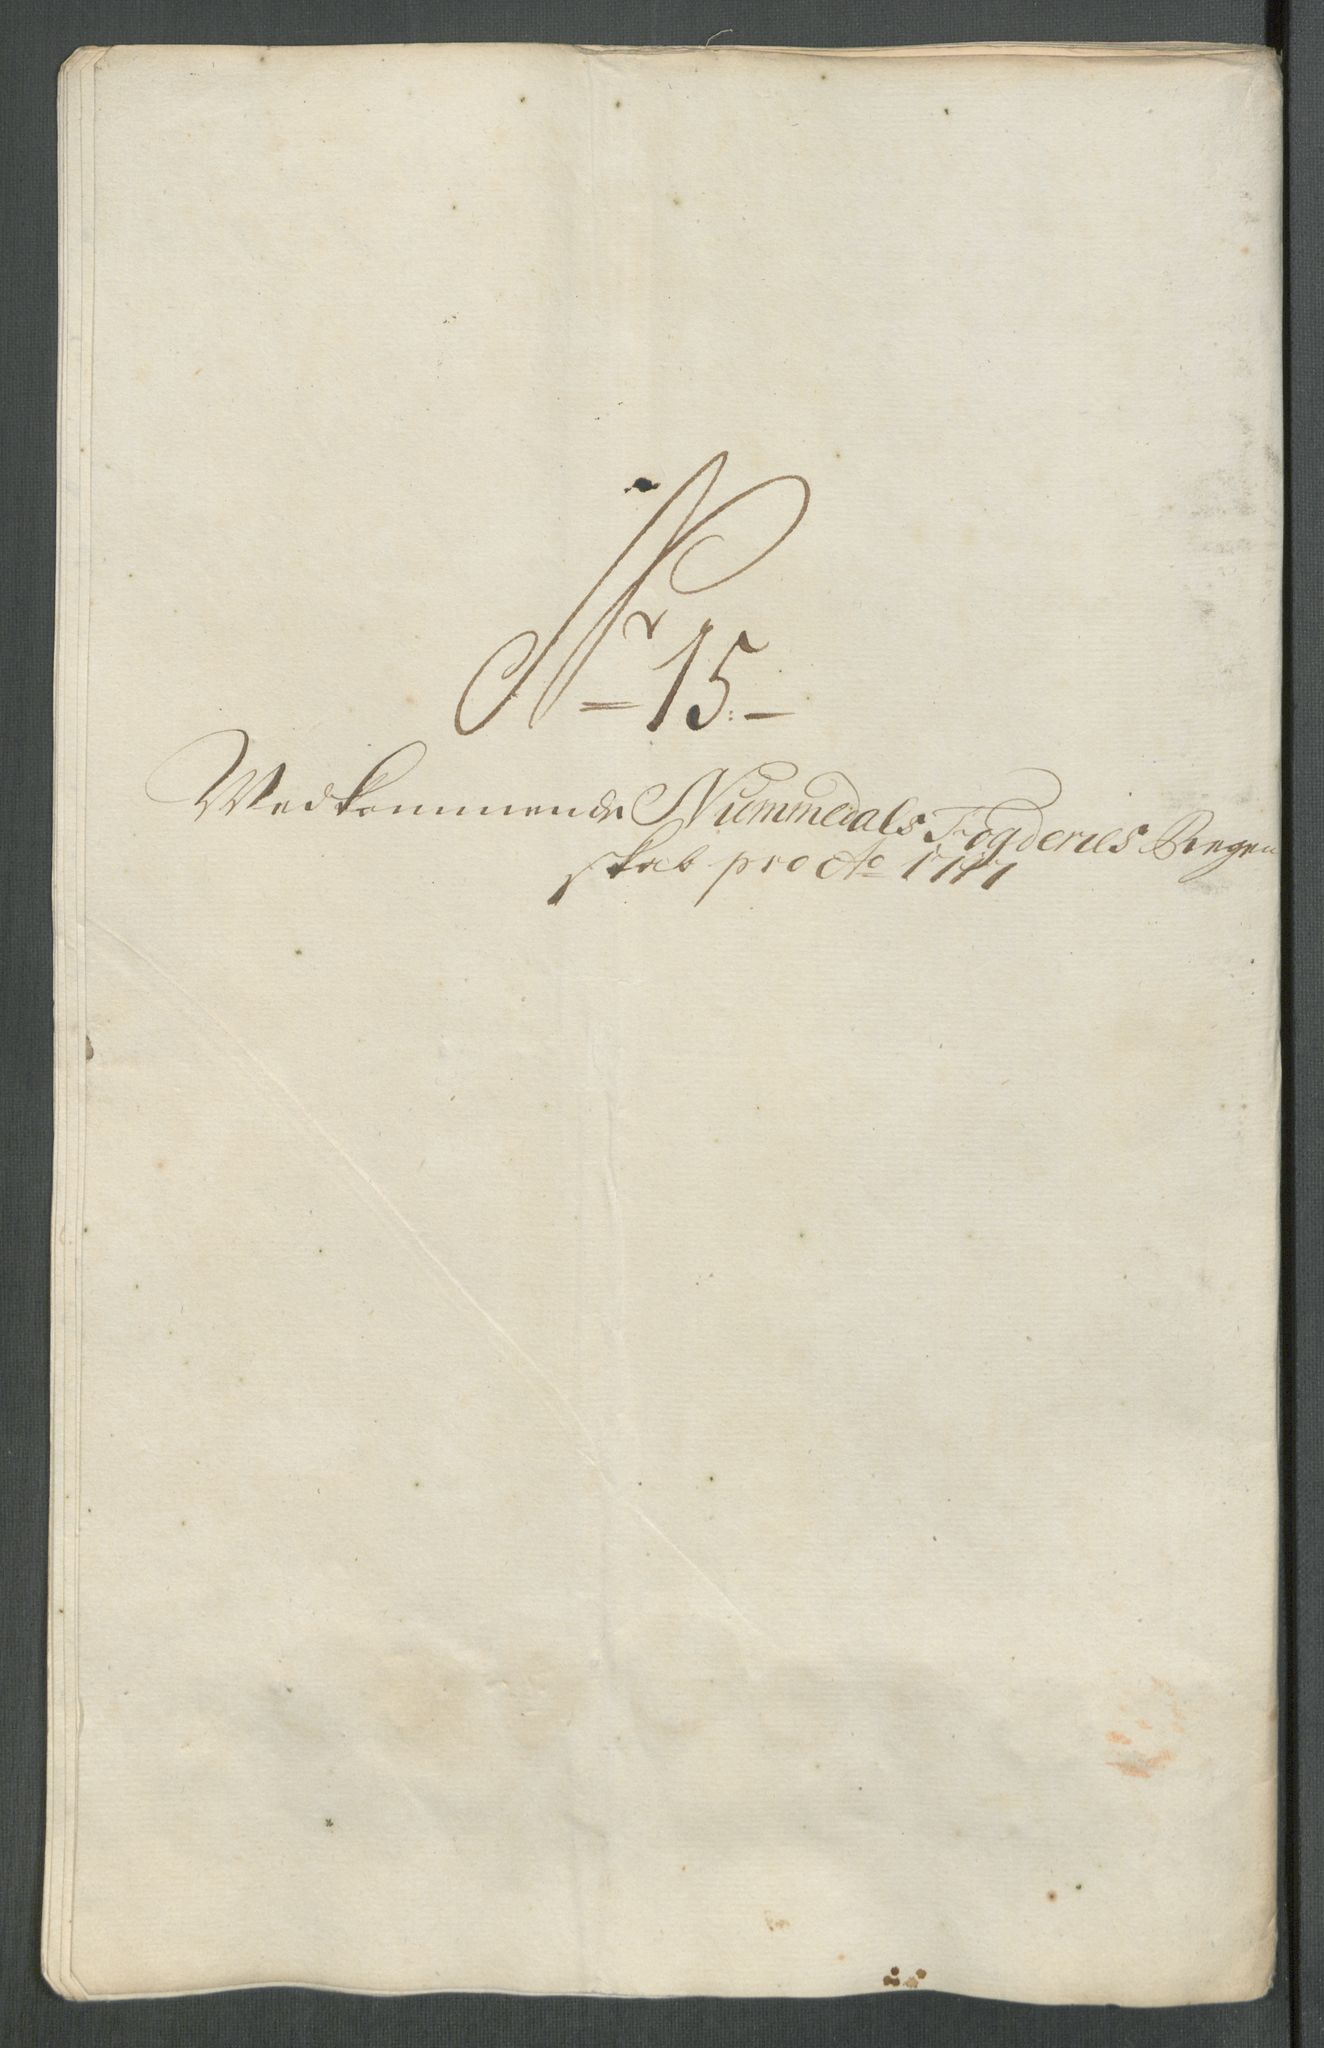 Nr 15.-
Wedkommende Nummedals Fogderies Regen
skab pro Ao 1717